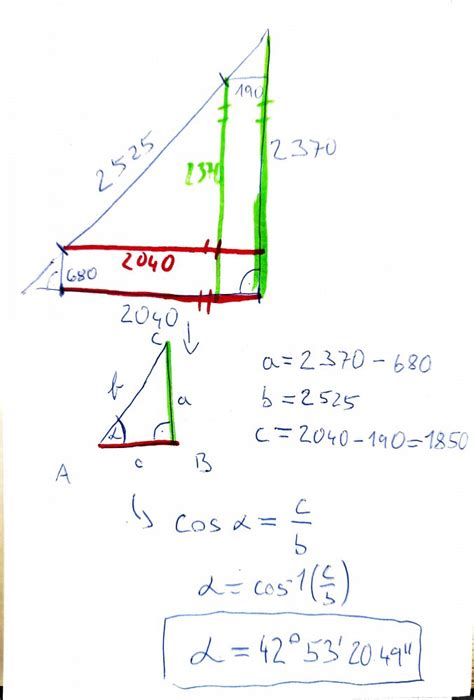 190
2525
2370
2370
2040
680
2040
C
b
a
α
A
c
B
a = 2370 - 680
b = 2525
c = 2040 - 190 = 1850
cos α = c/b
α = cos⁻¹(c/b)
α = 42° 53' 20.49"